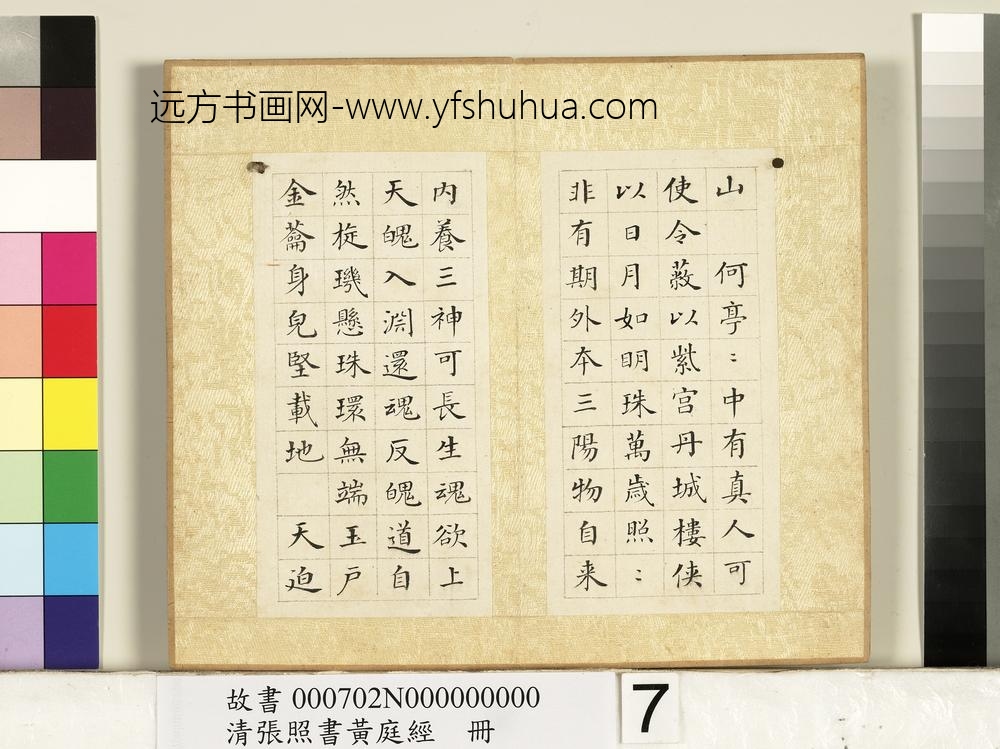 远方书画网-www.yfshuhua.com
山 何亭:中有真人可
使令蔽以紫宫丹城樓俠
以日月如明珠萬歲照:
非有期外夲三陽物自来
内養三神可長生魂欲上
天魄入淵還魂反魄道自
然㨁璣懸珠環無端玉戶
金籥身皃堅載地 天迫
故書 000702N000000000
清張照書黃庭經 冊
7